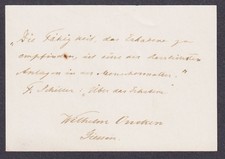 „Die Fähigkeit, das Erhabene zu
empfinden, ist eine der herrlichsten
Anlagen in der Menschennatur."
F. Schiller, Über das Erhabene
Wilhelm Oncken
Giessen